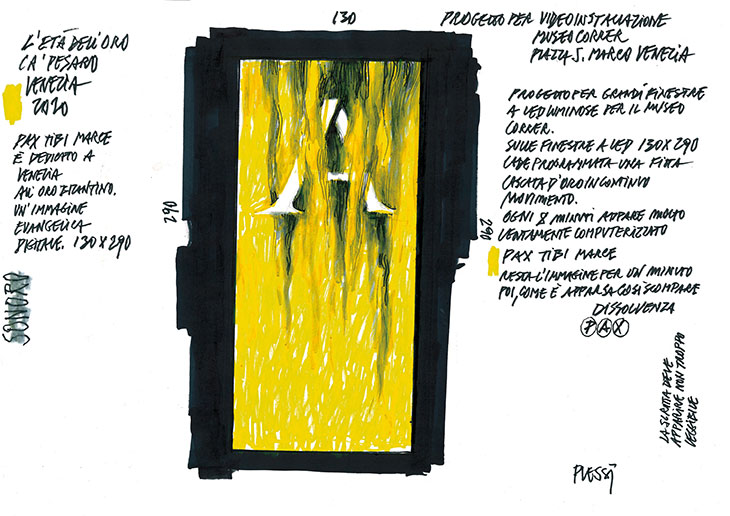 L'ETÀ DELL'ORO
CA' PESARO
VENEZIA
2020
PAX TIBI MARCE
È DEDICATO A
VENEZIA
ALL'ORO BIZANTINO.
UN'IMMAGINE
EVANGELICA
DIGITALE. 130X290
SONORO
130
290
290
A
PROGETTO PER VIDEOINSTALLAZIONE
MUSEO CORRER
PIAZZA S. MARCO VENEZIA
PROGETTO PER GRANDI FINESTRE
A LED LUMINOSE PER IL MUSEO
CORRER.
SULLE FINESTRE A LED 130X290
CADE PROGRAMMATA UNA FITTA
CASCATA D'ORO IN CONTINUO
MOVIMENTO.
OGNI 8 MINUTI APPARE MOLTO
LENTAMENTE COMPUTERIZZATO
PAX TIBI MARCE
RESTA L'IMMAGINE PER UN MINUTO
POI, COME È APPARSA COSÌ SCOMPARE
DISSOLVENZA
PAX
LA SCRITTA DEVE
APPARIRE NON TROPPO
LEGGIBILE
PLESSI